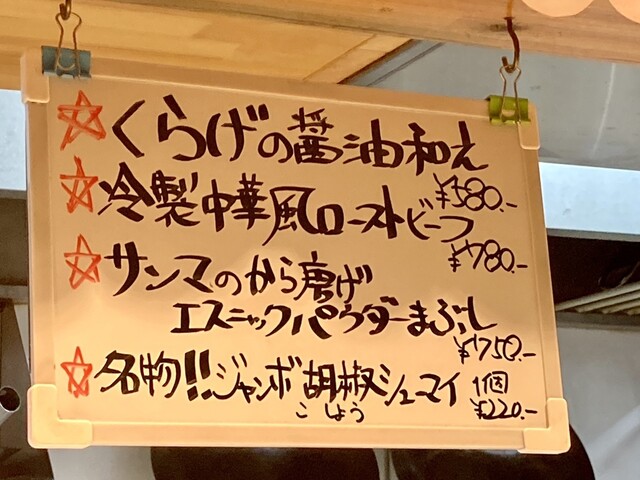 ☆くらげの醤油和え
¥580.-
☆冷製中華風ローストビーフ
¥780.-
☆サンマのから唐げ
エスニックパウダーまぶし
¥750.-
☆名物!!ジャンボ胡椒シューマイ 1個
こしょう ¥220.-